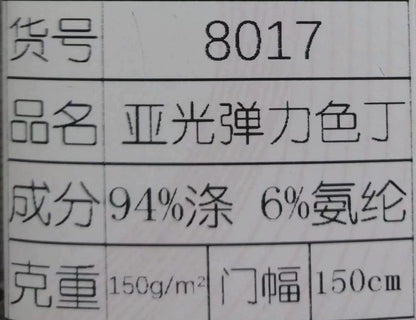 货号 8017
品名 亚光弹力色丁
成分 94%涤 6%氨纶
克重 150g/m² 门幅 150cm